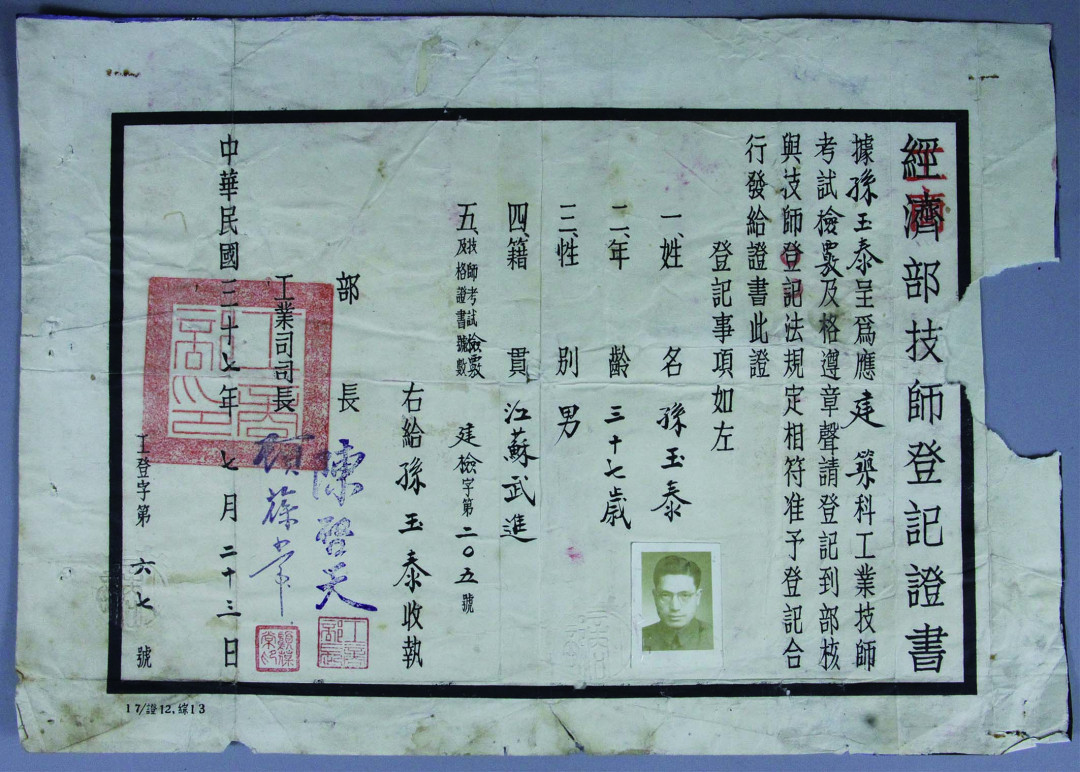 經濟部技師登記證書
工商
據孫玉泰呈爲應建築科工業技師
考試檢覈及格遵章聲請登記到部核
與技師登記法規定相符准予登記合
行發給證書此證
登記事項如左
一、姓名 孫玉泰
二、年齡 三十七歲
三、性別 男
四、籍貫 江蘇武進
五、技師考試檢覈及格證書號數 建檢字第二〇五號
右給孫玉泰收執
部長 陳啓天
工業司司長
工商部印
中華民國三十七年七月二十三日
工登字第六七號
17/證12.綜13